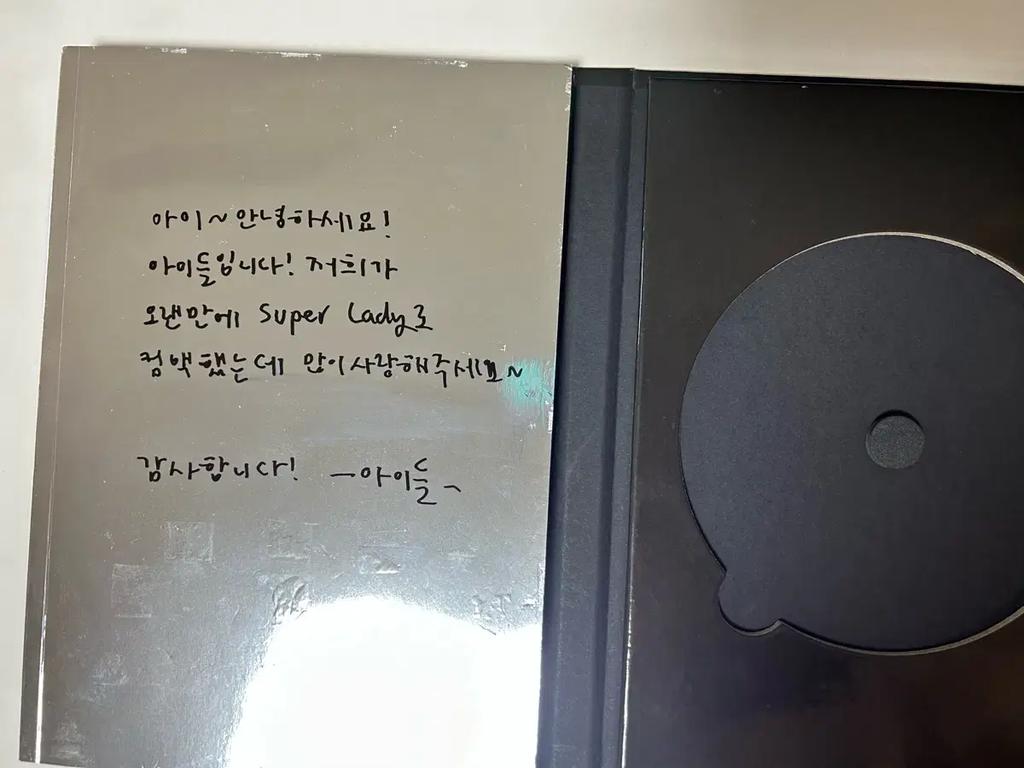 아이~안녕하세요!
아이들입니다! 저희가
오랜만에 Super Lady로
컴백했는데 많이사랑해주세요~
감사합니다! -아이들-